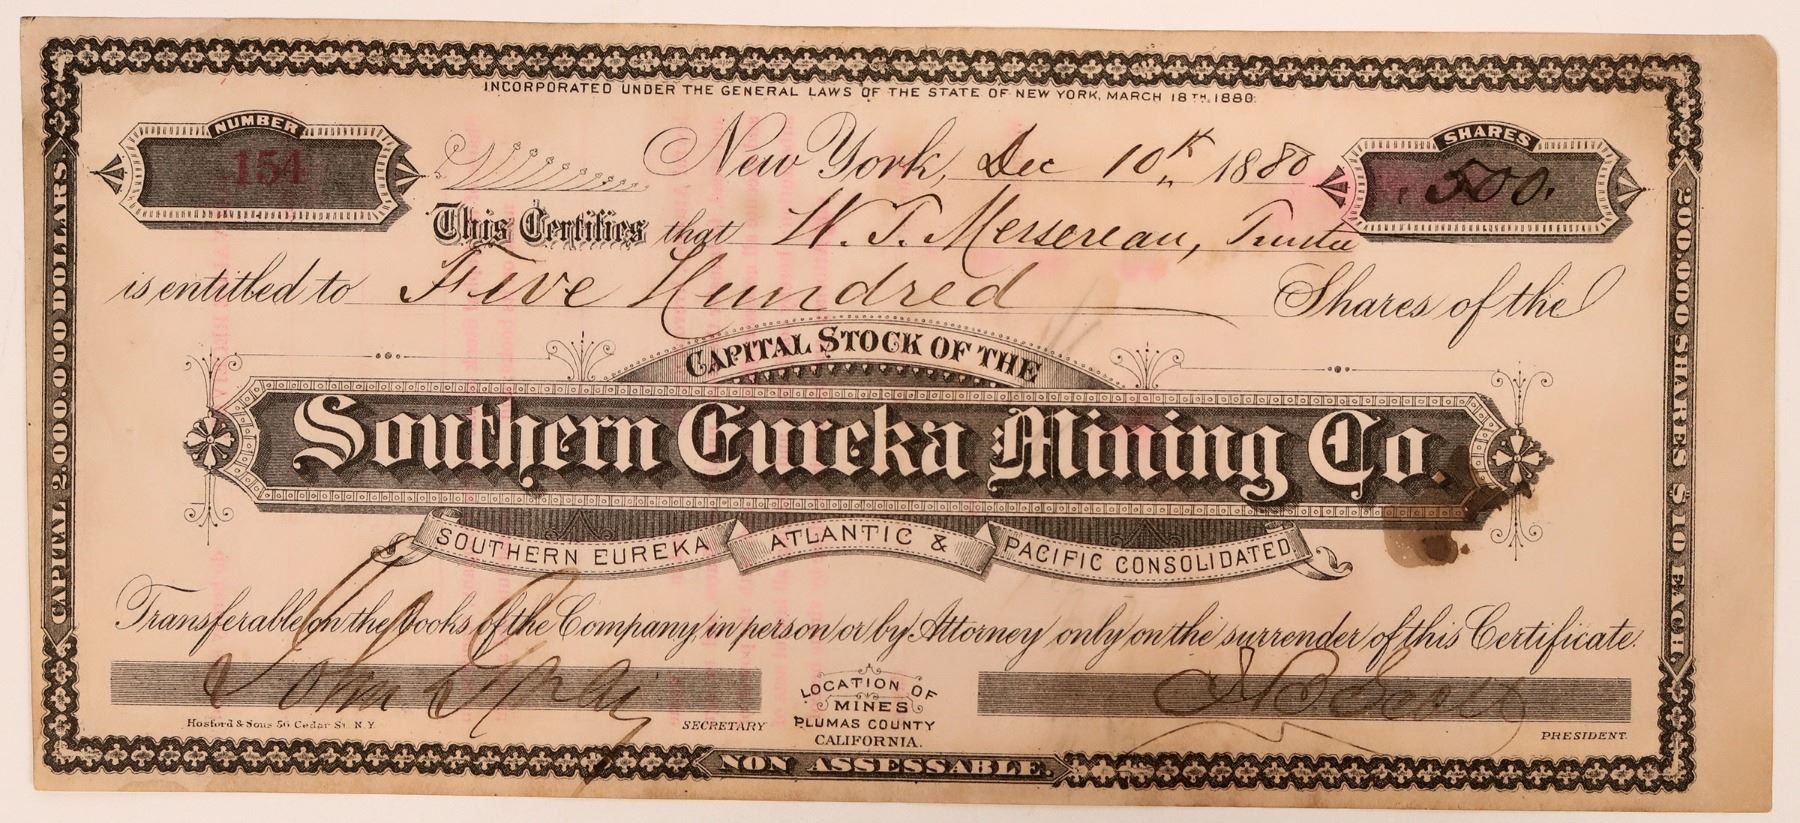 INCORPORATED UNDER THE GENERAL LAWS OF THE STATE OF NEW YORK, MARCH 18TH, 1880.
NUMBER
154
New York, Dec 10th 1880
SHARES
500
This Certifies that W. T. Mersereau, Trustee
is entitled to Five Hundred Shares of the
CAPITAL STOCK OF THE
Southern Eureka Mining Co.
SOUTHERN EUREKA ATLANTIC & PACIFIC CONSOLIDATED
Transferable on the Books of the Company in person or by Attorney only on the surrender of this Certificate.
John
Scott
LOCATION OF
MINES
PLUMAS COUNTY
CALIFORNIA.
Hosford & Sons 56 Cedar St. N.Y.
SECRETARY
PRESIDENT.
NON ASSESSABLE.
CAPITAL 2,000,000 DOLLARS.
200,000 SHARES $10 EACH